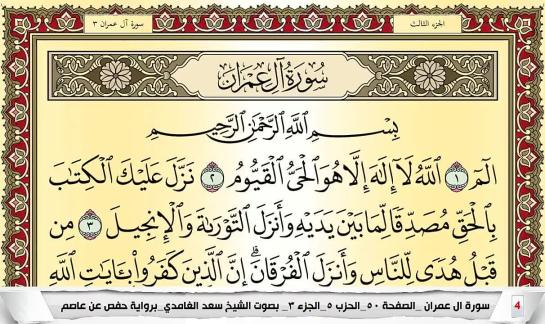 الجزء الثالث
سورة آل عمران ٣
سُورَةُ آلِ عِمْرَان
بِسْمِ ٱللَّهِ ٱلرَّحْمَٰنِ ٱلرَّحِيمِ
الٓمٓ ١ ٱللَّهُ لَآ إِلَٰهَ إِلَّا هُوَ ٱلْحَىُّ ٱلْقَيُّومُ ٢ نَزَّلَ عَلَيْكَ ٱلْكِتَٰبَ
بِٱلْحَقِّ مُصَدِّقًا لِّمَا بَيْنَ يَدَيْهِ وَأَنزَلَ ٱلتَّوْرَىٰةَ وَٱلْإِنجِيلَ ٣ مِن
قَبْلُ هُدًى لِّلنَّاسِ وَأَنزَلَ ٱلْفُرْقَانَ ۗ إِنَّ ٱلَّذِينَ كَفَرُوا۟ بِـَٔايَٰتِ ٱللَّهِ
4 سورة ال عمران _الصفحة ٥٠_الحزب ٥_الجزء ٣_ بصوت الشيخ سعد الغامدي_برواية حفص عن عاصم